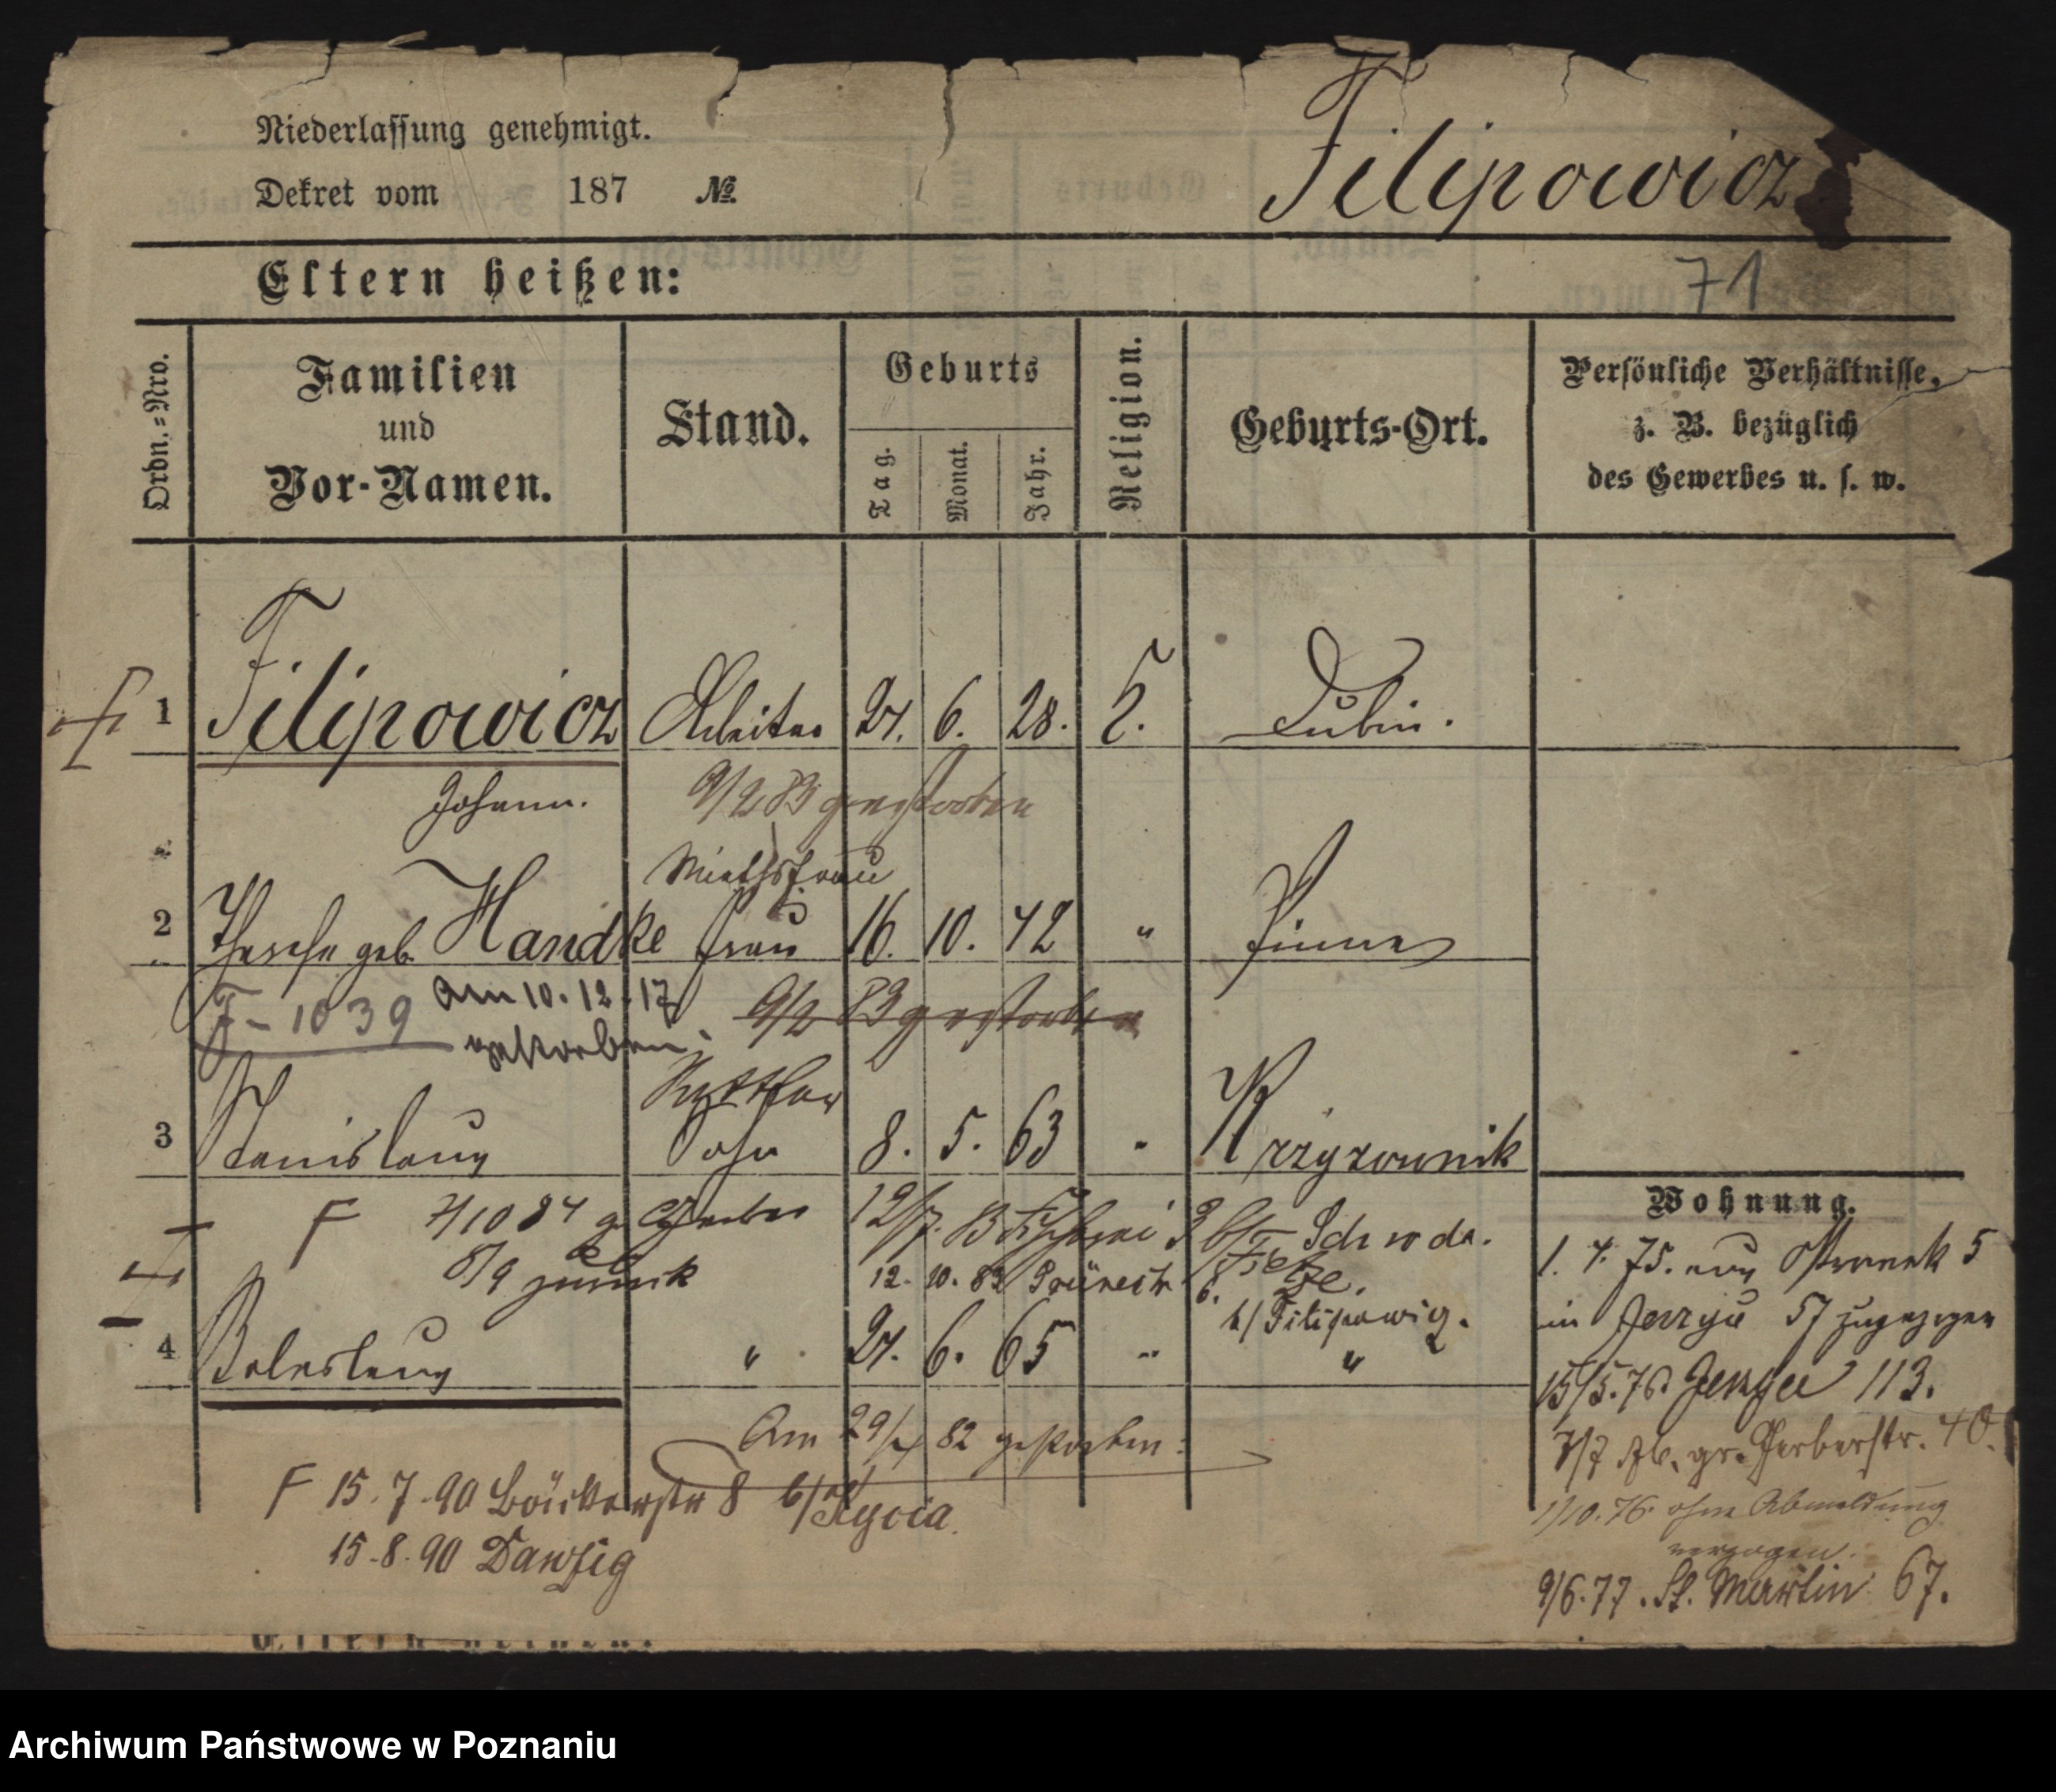 Niederlassung genehmigt.
Dekret vom 187 №
Filipowicz
Eltern heißen:
71
Ordn.=Nro.
Familien
und
Vor-Namen.
Stand.
Geburts
Tag.
Monat.
Jahr.
Religion.
Geburts-Ort.
Persönliche Verhältnisse,
z. B. bezüglich
des Gewerbes u. s. w.
1 Filipowicz Arbeiter 27. 6. 28. Dubin.
Johann. 9/2 83 gestorben
Miethsfrau
2 geb. Handke Frau 16. 10. 42 " Pinne
F-1039 Am 10.12.17 9/2 83 gestorben
gestorben.
3 Stanislaus Sohn 8. 5. 63 " Krzyzownik
F 7/10 84 12/7. 83 3 b/ Schroda.
8/9 zurück 12. 10. 83 6.
b/ Filipowicz.
4 Boleslaus " 27. 6. 65 " "
Am 82 gestorben.
F 15.7.90 Bäckerstr 8 b/
15.8.90 Danzig
Wohnung.
1. 4. 75. aus 5
in Jerzyce 57 zugezogen
15/5.76 Jerzyce 113.
gr. Gerberstr. 40.
1/10.76. ohne Abmeldung
verzogen.
9/6.77. St. Martin 67.
Archiwum Państwowe w Poznaniu